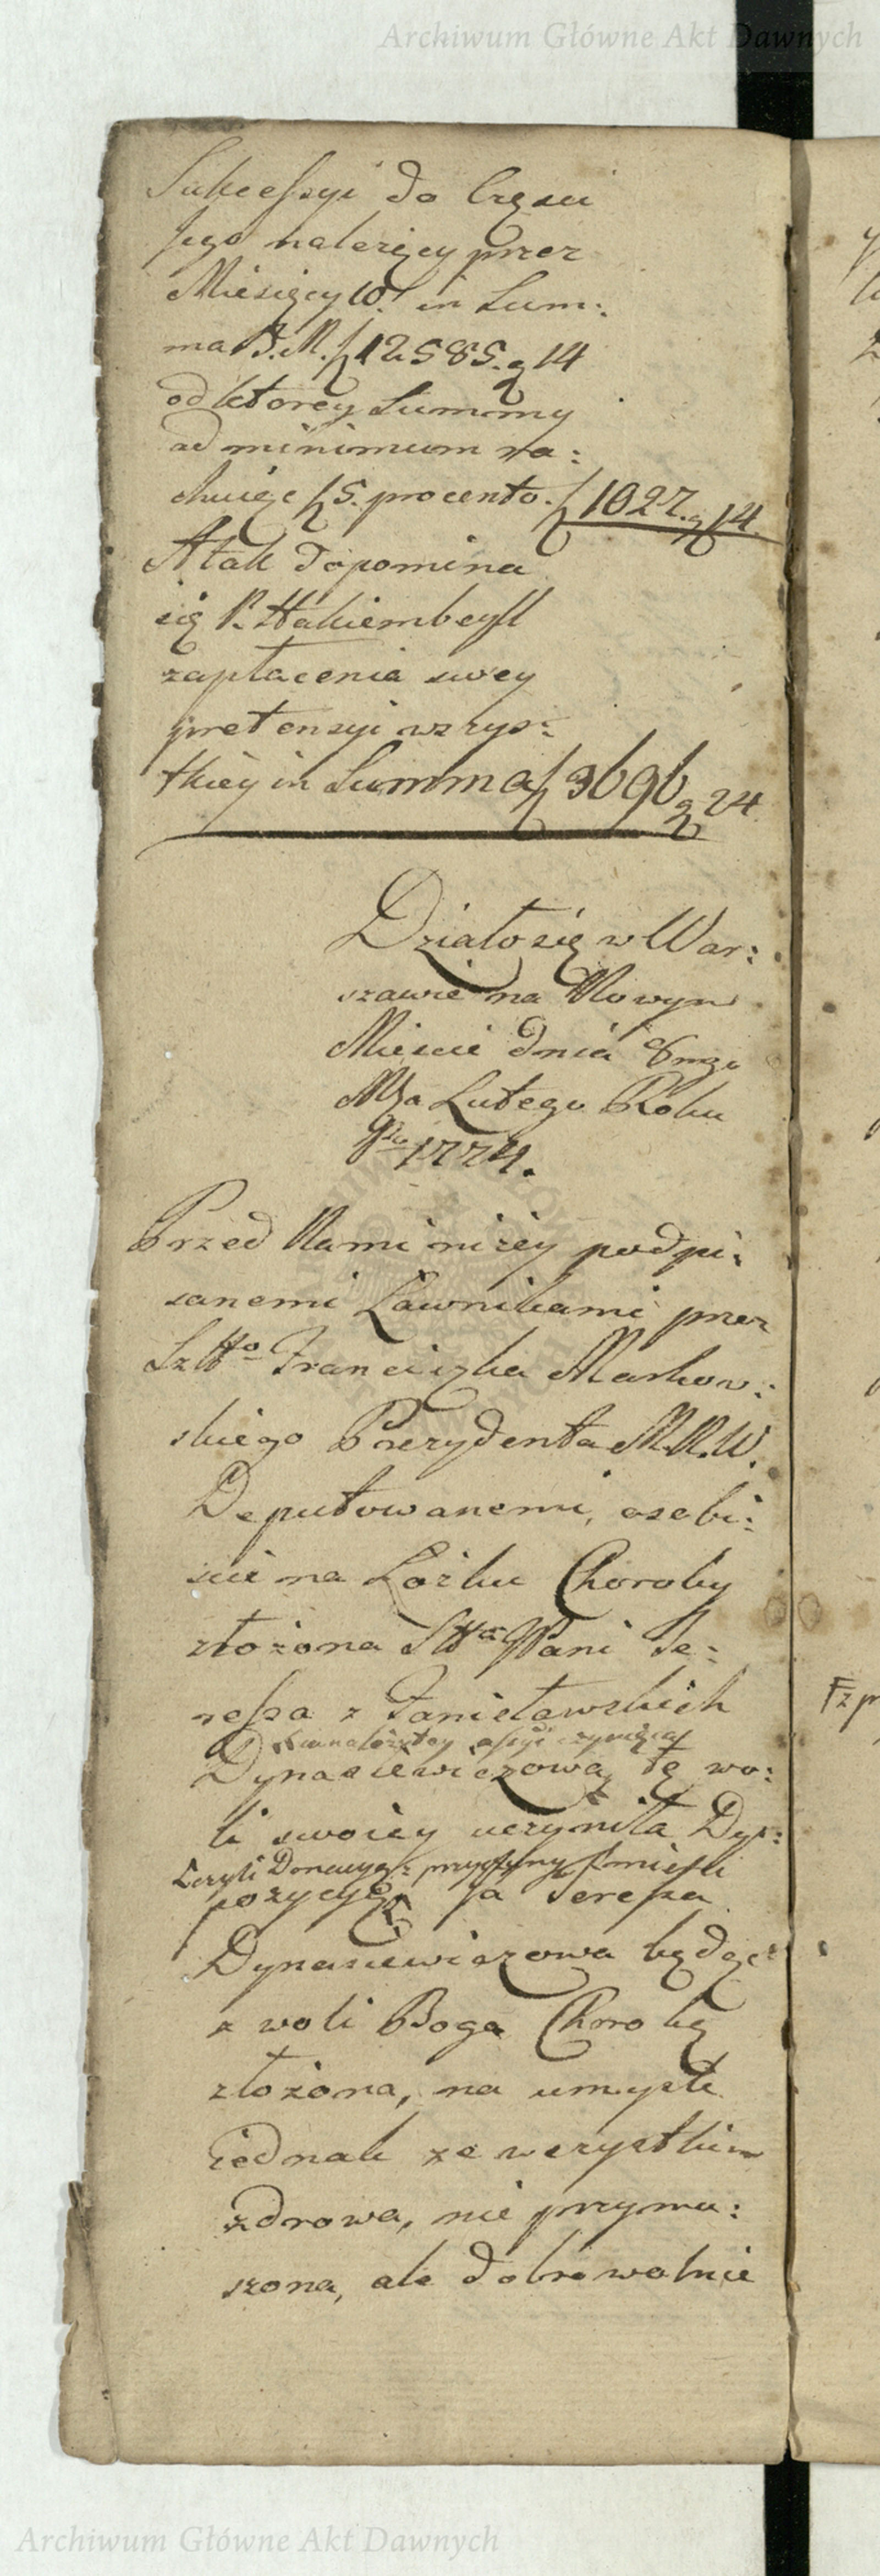 Archiwum Główne Akt Dawnych
Sukcessyi do Częsci
Jego należący przez
Miesięcy 10. in Sum:
ma B. M. f 12585. g 14
od ktorey Summy
ad minimum ra:
chuiąc f 5. procento. f 1027. g 14.
A tak dopomina
się P. Hakiembeyll
zapłacenia swey
pretensyi wszys:
tkiey in Summa f 3696 g 24
Działo się w War:
szawie na Nowym
Mieście dnia 6mgo
Mca Lutego Roku
1774.
Przed Nami niżey podpi:
sanemi Ławnikami przez
Franciszka Markow:
skiego Prezydenta M.N.W.
Deputowanemi, osobi:
ście na Łóżku Choroby
złożona Pani Te:
ressa z Daniełewskich
Dynasiewiczowa, tę wo:
li swoiey uczyniła Dys:
Czyli Donacyą
pozycyą Ja Teressa
Dynasiewiczowa będąc
z woli Boga Chorobą
złożona, na umyśle
iednak ze wszystkim
zdrowa, nie przymu:
szona, ale dobrowolnie
Archiwum Główne Akt Dawnych